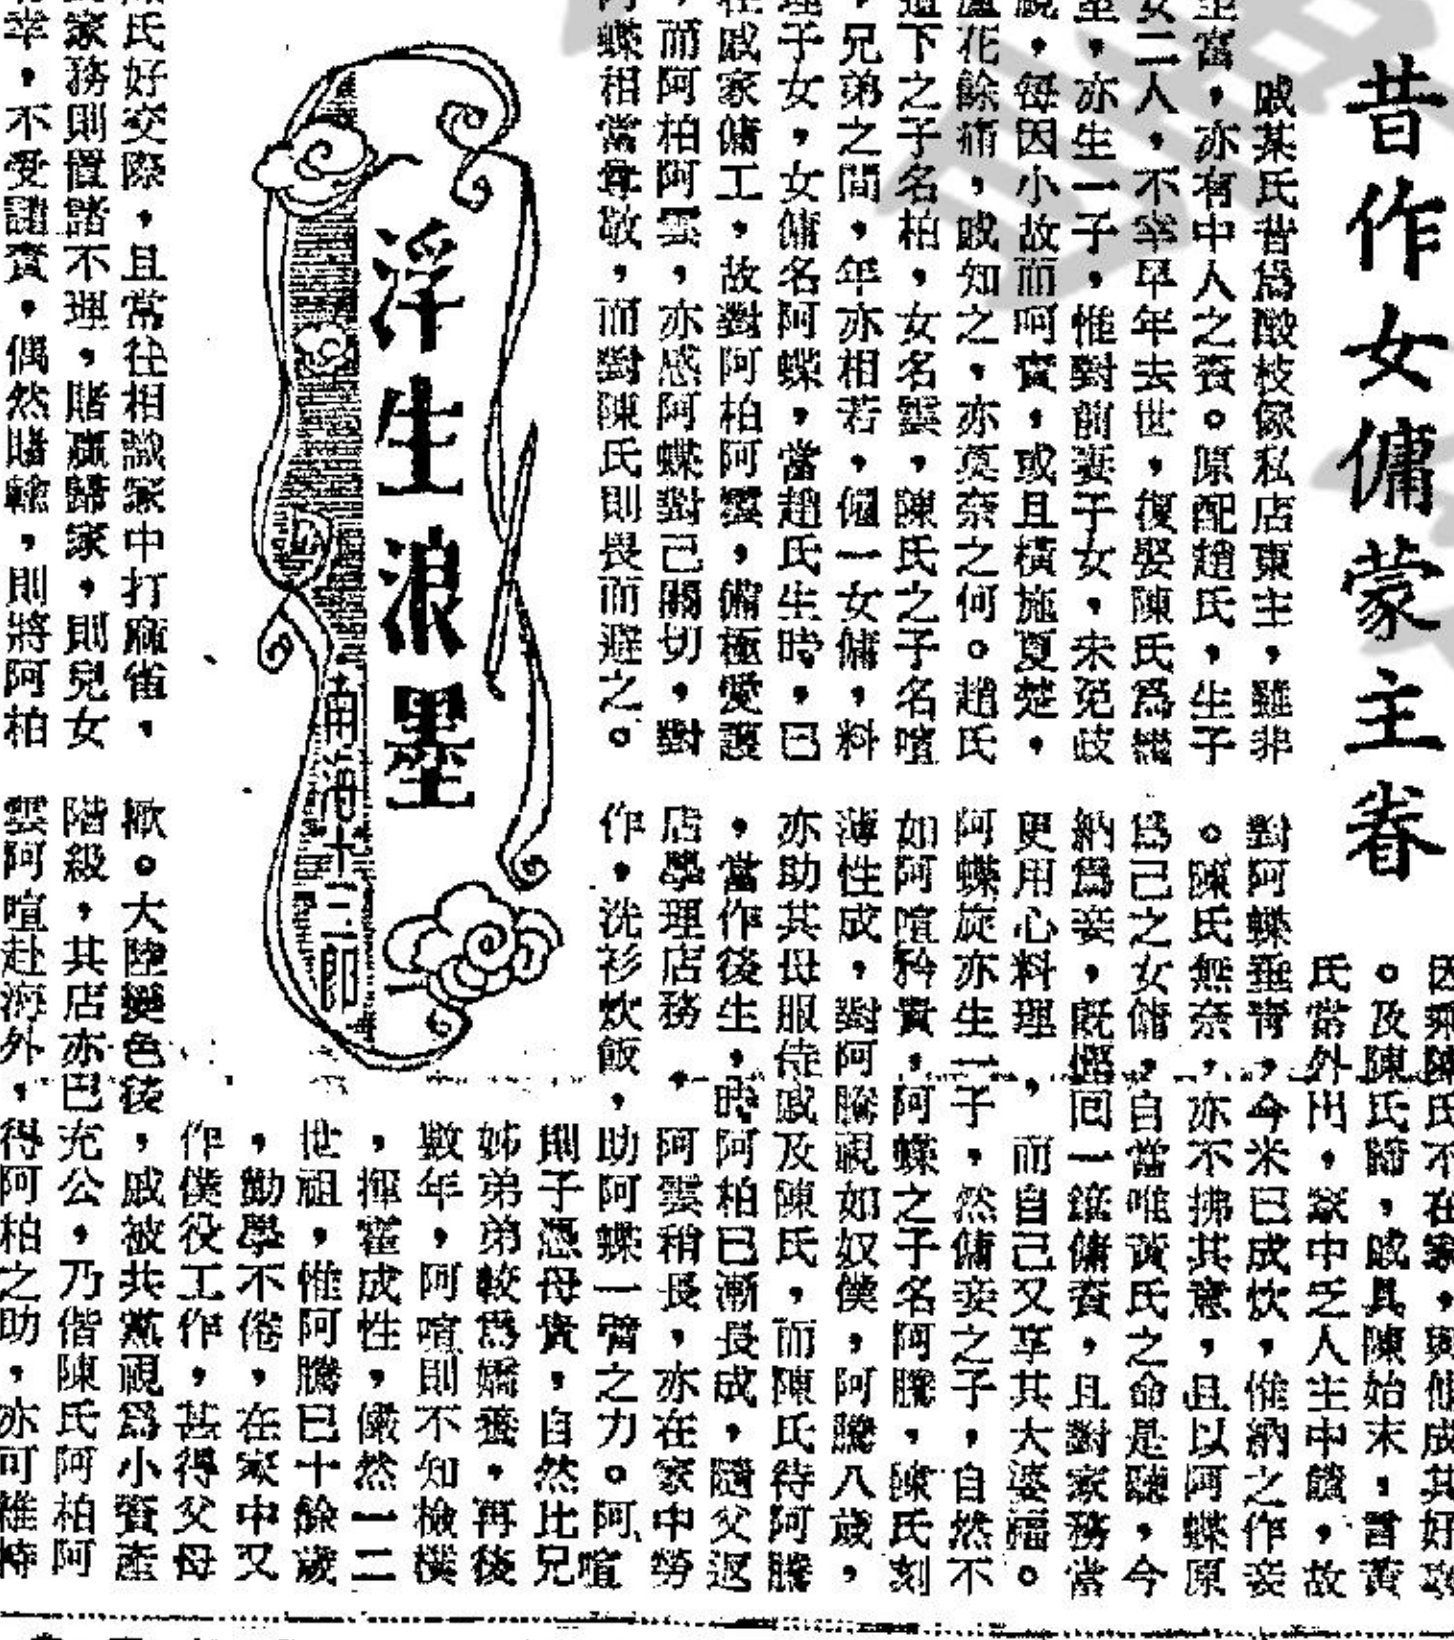 昔作女傭蒙主眷
戚某氏昔為酸枝傢私店東主,雖非
至富,亦有中人之資。原配趙氏,生子
女二人,不幸早年去世,復娶陳氏為繼
室,亦生一子,惟對前妻子女,未免歧
視,每因小故而呵責,或且橫施夏楚,
蘆花餘痛,戚知之,亦莫奈之何。趙氏
遺下之子名柏,女名雲,陳氏之子名喧
,兄弟之間,年亦相若,僱一女傭,料
理子女,女傭名阿蝶,當趙氏生時,已
在戚家傭工,故對阿柏阿雲,備極愛護
,而阿柏阿雲,亦感阿蝶對己關切,對
阿蝶相當尊敬,而對陳氏則畏而避之。
浮生浪墨
南海十三郎
氏好交際,且常往相識家中打麻雀,
家務則置諸不理,賭贏歸家,則兒女
幸,不受譴責,偶然賭輸,則將阿柏
陳氏不在家,與他成其好事
。及陳氏歸,戚具陳始末,言黃
氏常外出,家中乏人主中饋,故
對阿蝶垂青,今米已成炊,惟納之作妾
。陳氏無奈,亦不拂其意,且以阿蝶原
為己之女傭,自當唯黃氏之命是聽,今
納為妾,既慳回一筆傭資,且對家務當
更用心料理,而自己又享其大婆福。
阿蝶旋亦生一子,然傭妾之子,自然不
如阿喧矜貴,阿蝶之子名阿騰,陳氏刻
薄性成,對阿騰視如奴僕,阿騰八歲,
亦助其母服侍戚及陳氏,而陳氏待阿騰
,當作後生,時阿柏已漸長成,隨父返
店學理店務,阿雲稍長,亦在家中勞
作,洗衫炊飯,助阿蝶一臂之力。阿喧
則子憑母貴,自然比兄
姊弟弟較為嬌養,再後
數年,阿喧則不知檢樸
,揮霍成性,儼然一二
世祖,惟阿騰已十餘歲
,勤學不倦,在家中又
作僕役工作,甚得父母
歡。大陸變色後,戚被共黨視為小資產
階級,其店亦已充公,乃偕陳氏阿柏阿
雲阿喧赴海外,得阿柏之助,亦可維持